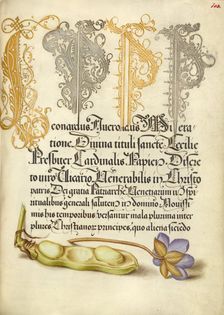 conardus Aueroicus Mise
ratione, Divina tituli sancte Cecilie
Presbiter Cardinalis Papien Discre
to viro Vicario Venerabilis in Christo
patris Dei gratia Patriarche Venetiarum in spi-
ritualibus generali salutem in domino. Nouissi-
mis his temporibus versantur mala plurima inter
plures Christianos principes, quo aliena sæcedo